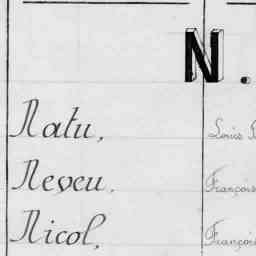 N.
Natu, Louis
Neveu, François
Nicol, François